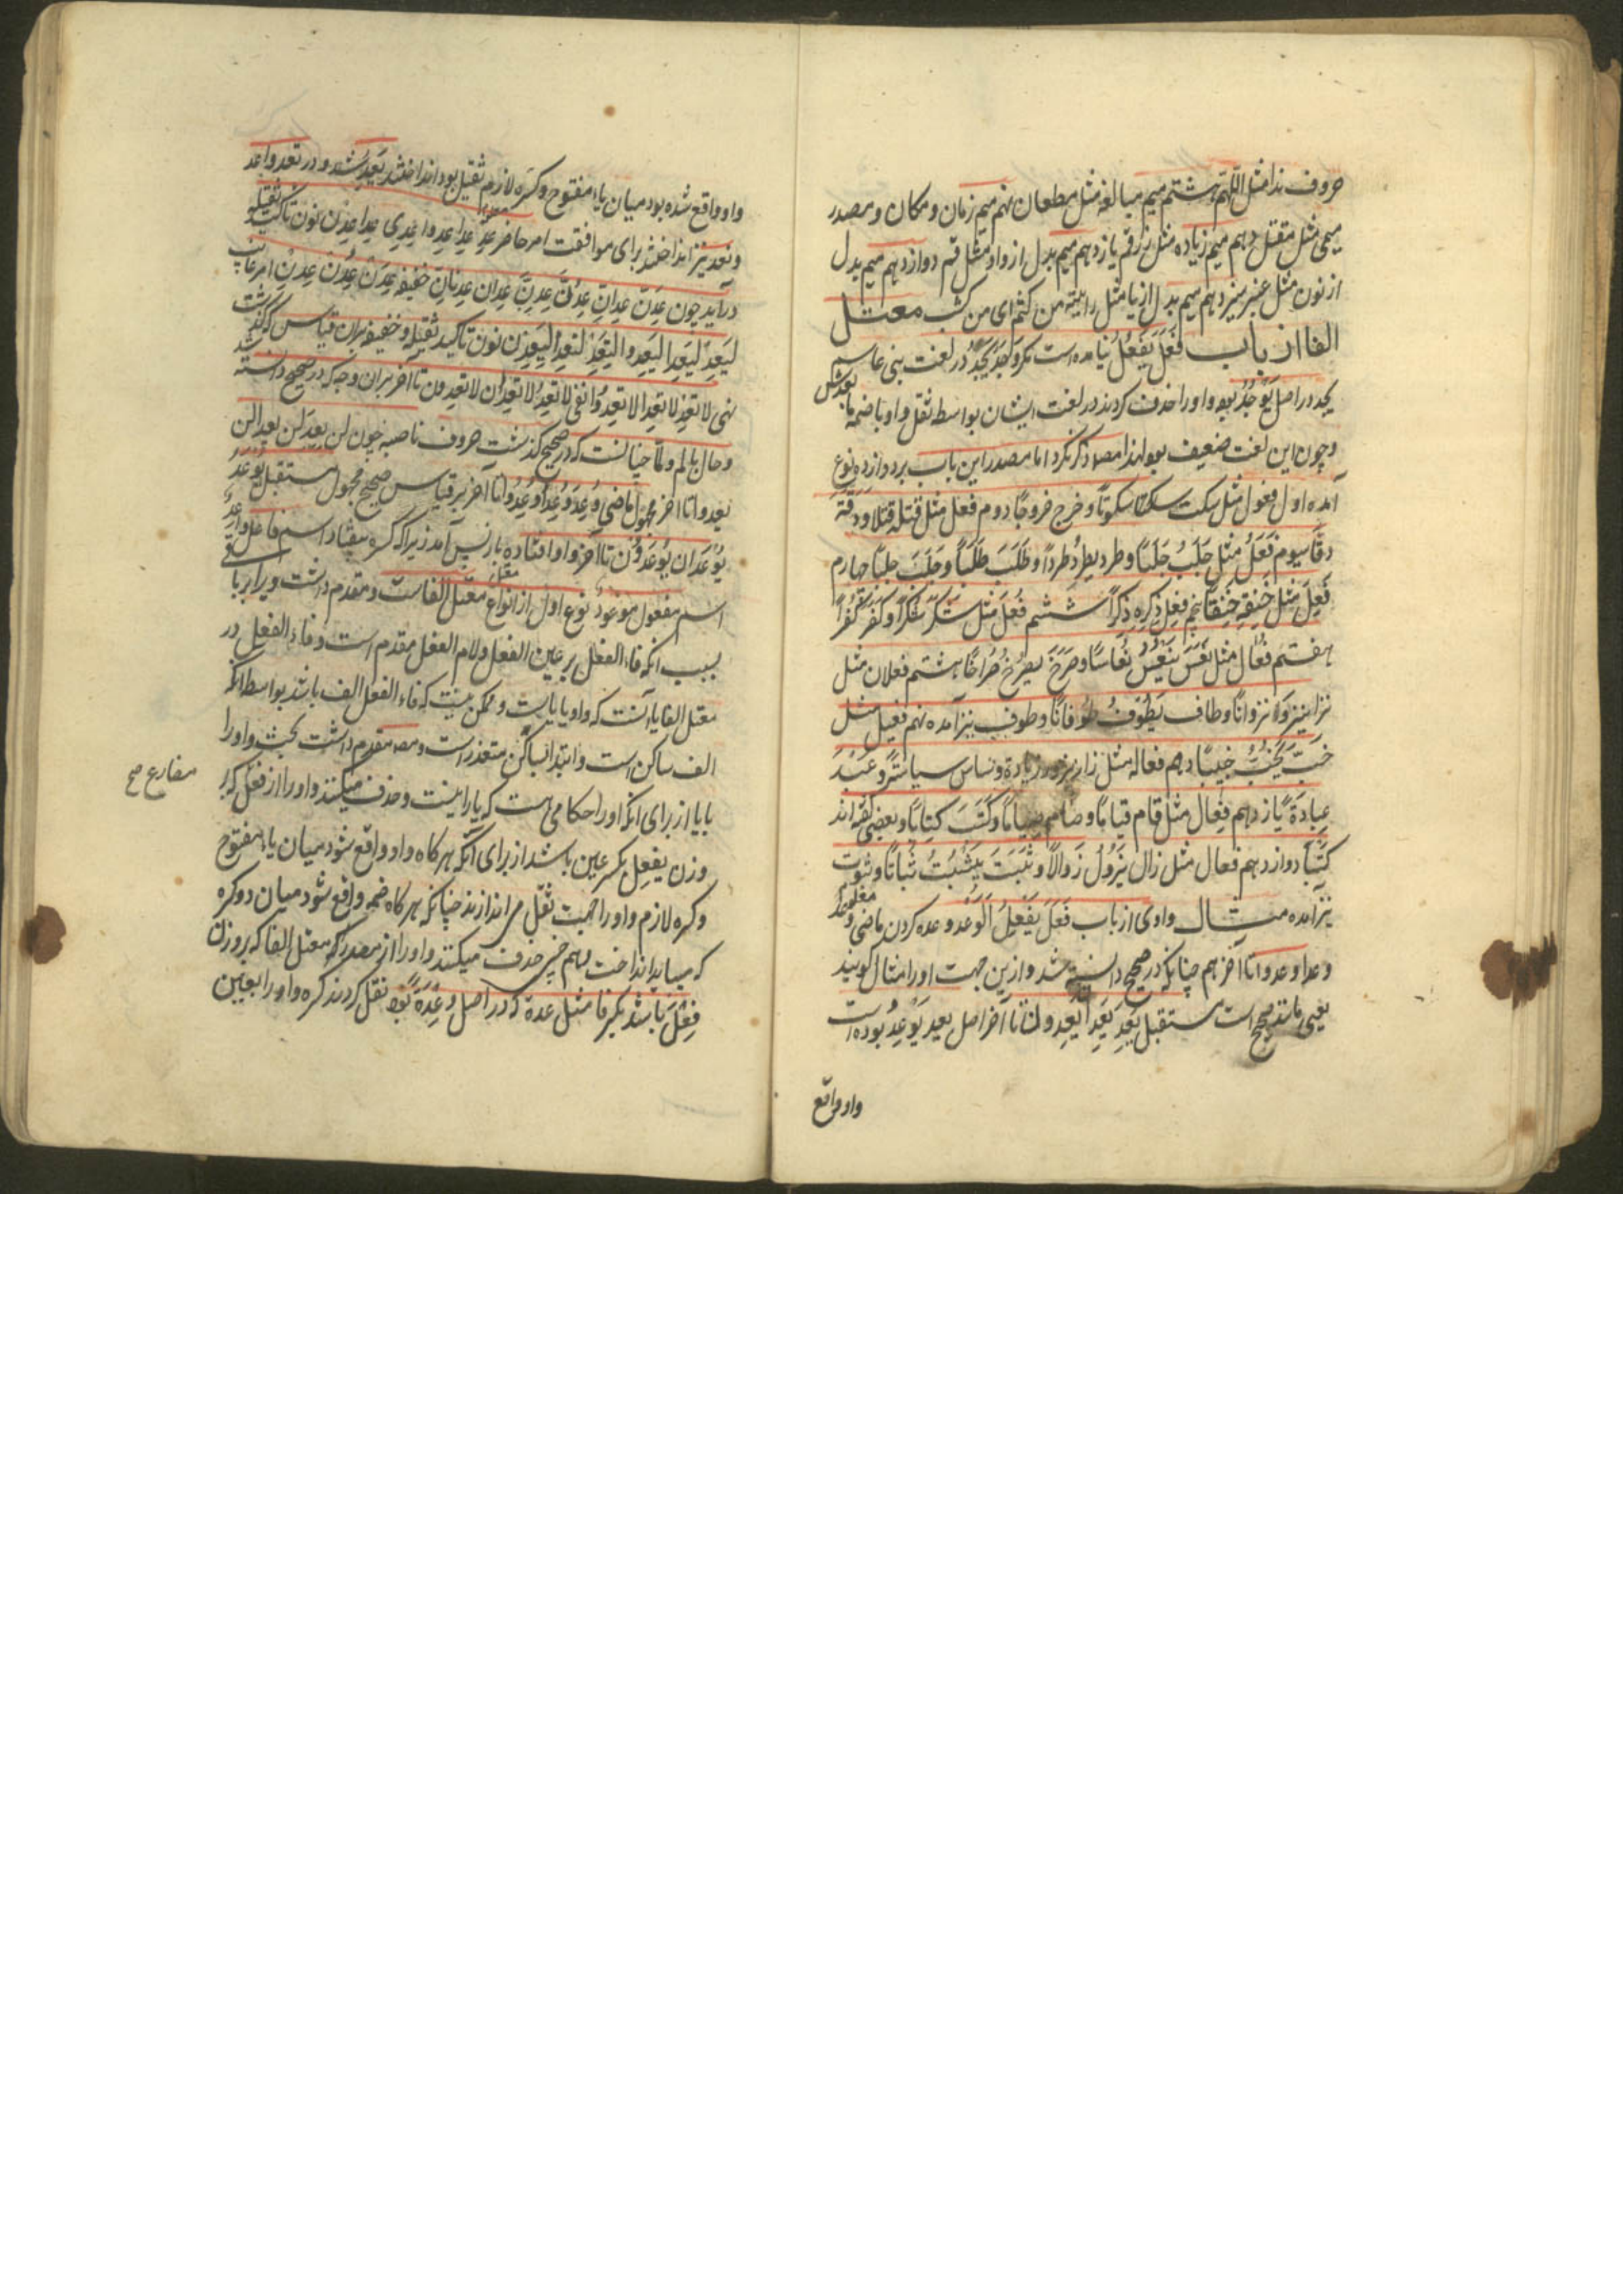 حروف ندا مثل اللهم هشتم میم مبالغه مثل مطعان نهم میم زمان و مکان و مصدر
میمی مثل مقتل دهم میم زیاده مثل زرقم یازدهم میم بدل از واو مثل فم دوازدهم میم بدل
از نون مثل عنبر سیزدهم میم بدل از با مثل رایته من کثم ای من کثب معتل
الفا از باب فَعَلَ یَفْعُلُ نیامده است مگر وَجَدَ یَجُدُ در لغت بنی عامر
یجد در اصل یَوْجُدُ بود واو را حذف کردند در لغت ایشان بواسطه ثقل واو با ضمه ما بعدش
و چون این لغت ضعیف بود لهذا مصـ ذکر نکرد اما مصدر این باب بر دوازده نوع
آمده اول فعول مثل سکت سکوتًا و خرج خروجًا دوم فعل مثل قتله قتلا و دقّه
دقّا سیوم فَعَلُ مثل جَلَبُ جَلَبًا و طرد یطردُ طردًا و طَلَبَ طَلَبًا و جَلَبَ جلبًا چهارم
فَعِلَ مثل خَنِقَهِ خَنِقًا پنجم فِعل ذِکره ذِکرًا ششم فُعلَ مثل شکر شُکرًا و کفر کُفرًا
هفتم فعال مثل نَعَسَ یَنْعُسُ نُعاسًا و صَرَخَ یصرُخ صُراخًا هشتم فعلان مثل
نزا ینزو نزوانًا و طاف یَطُوفُ طوفانًا و طوف نیز آمده نهم فعیل مثل
خَبَّ یَخُبُّ خَبیبًا دهم فعاله مثل زار یزور زیارة و ساس سیاسَةً و عَبَدَ
عِبادَةً یازدهم فِعال مثل قام قیامًا و صام صیامًا و کَتَبَ کتابًا و بعضی گفته‌اند
کَتْبًا دوازدهم فعال مثل زال یَزُولُ زَوالًا و ثَبَتَ یَثْبُتُ ثَباتًا و ثبوت
نیز آمده مثال واوی از باب فَعَلَ یَفْعِلُ اَلْوَعد وعده کردن ماضی معلوم وعد
وعدا وعدوا تا آخر هم چنانکه در صحیح دانسته شد و ازین جهت او را مثال گویند
یعنی مانند صحیح است مستقبل یَعِدُ یَعِدانِ یَعِدون تا آخر اصل یعد یَوْعِدُ بوده است
واو واقع
واو واقع شده بود میان یاء مفتوح و کسره لازم ثقیل بود انداختند یَعِدُ شد و در تعد و اعد
و نعد نیز انداختند برای موافقت امر حاضر عِدْ عِدا عِدوا عِدی عِدا عِدْنَ نون تاکید ثقیله
درآید چون عِدَنَّ عِدانِّ عِدُنَّ عِدِنَّ عِدانِّ عِدْنانِّ خفیفه عِدَنْ عِدُنْ عِدِنْ امر غایب
لیَعِدْ لیَعِدا لیَعِدوا لتَعِدْ لتَعِدا لیَعِدْنَ نون تاکید ثقیله و خفیفه بران قیاس که گذشت
نهی لا تعِدْ لا تعِدا لا تعِدوا نفی لا تعِدُ لا تعِدان لا تعِدون تا آخر بران وجه که در صحیح دانسته شد
و حال با لم و لمّا چنانست که در صحیح گذشت حروف ناصبه چون لن یعِدَ لن یعِدا لن
یعِدوا تا آخر مجهول ماضی وُعِدَ وُعِدا وُعِدُوا تا آخر بر قیاس صحیح مجهول مستقبل یُوعَدُ
یُوعَدان یُوعَدُون تا آخر واو افتاده باز پس آمد زیرا که کسره بیفتاد اسم فاعل واعِدٌ
اسم مفعول موعودٌ نوع اول از انواع معتل معتل الفاست و مقدم داشت ویرا بر باقی
بسبب انکه فاء الفعل بر عین الفعل و لام الفعل مقدم است و فاء الفعل در
معتل الفا یا آنست که واو یا یاست و ممکن نیست که فاء الفعل الف باشد بواسطه انکه
الف ساکن است و ابتدا بساکن متعذر است و مصـ مقدم داشت بحث واو را
بایا از برای انکه او را احکامی هست که یا را نیست و حذف میکنند واو را از فعل که بر
مضارع صح
وزن یفعِل بکسر عین باشد از برای آنکه هر کاه واو واقع شود میان یاء مفتوح
و کسره لازم واو را بجهت ثقل می‌اندازند چنانکه هر کاه ضمه واقع شود میان دو کسره
که میباید انداخت بهم چنین حذف میکنند واو را از مصدر که معتل الفا که بر وزن
فِعْلَ باشد بکسر فا مثل عدة که در اصل وِعْدَةً بوده نقل کردند کسره واو را بعین